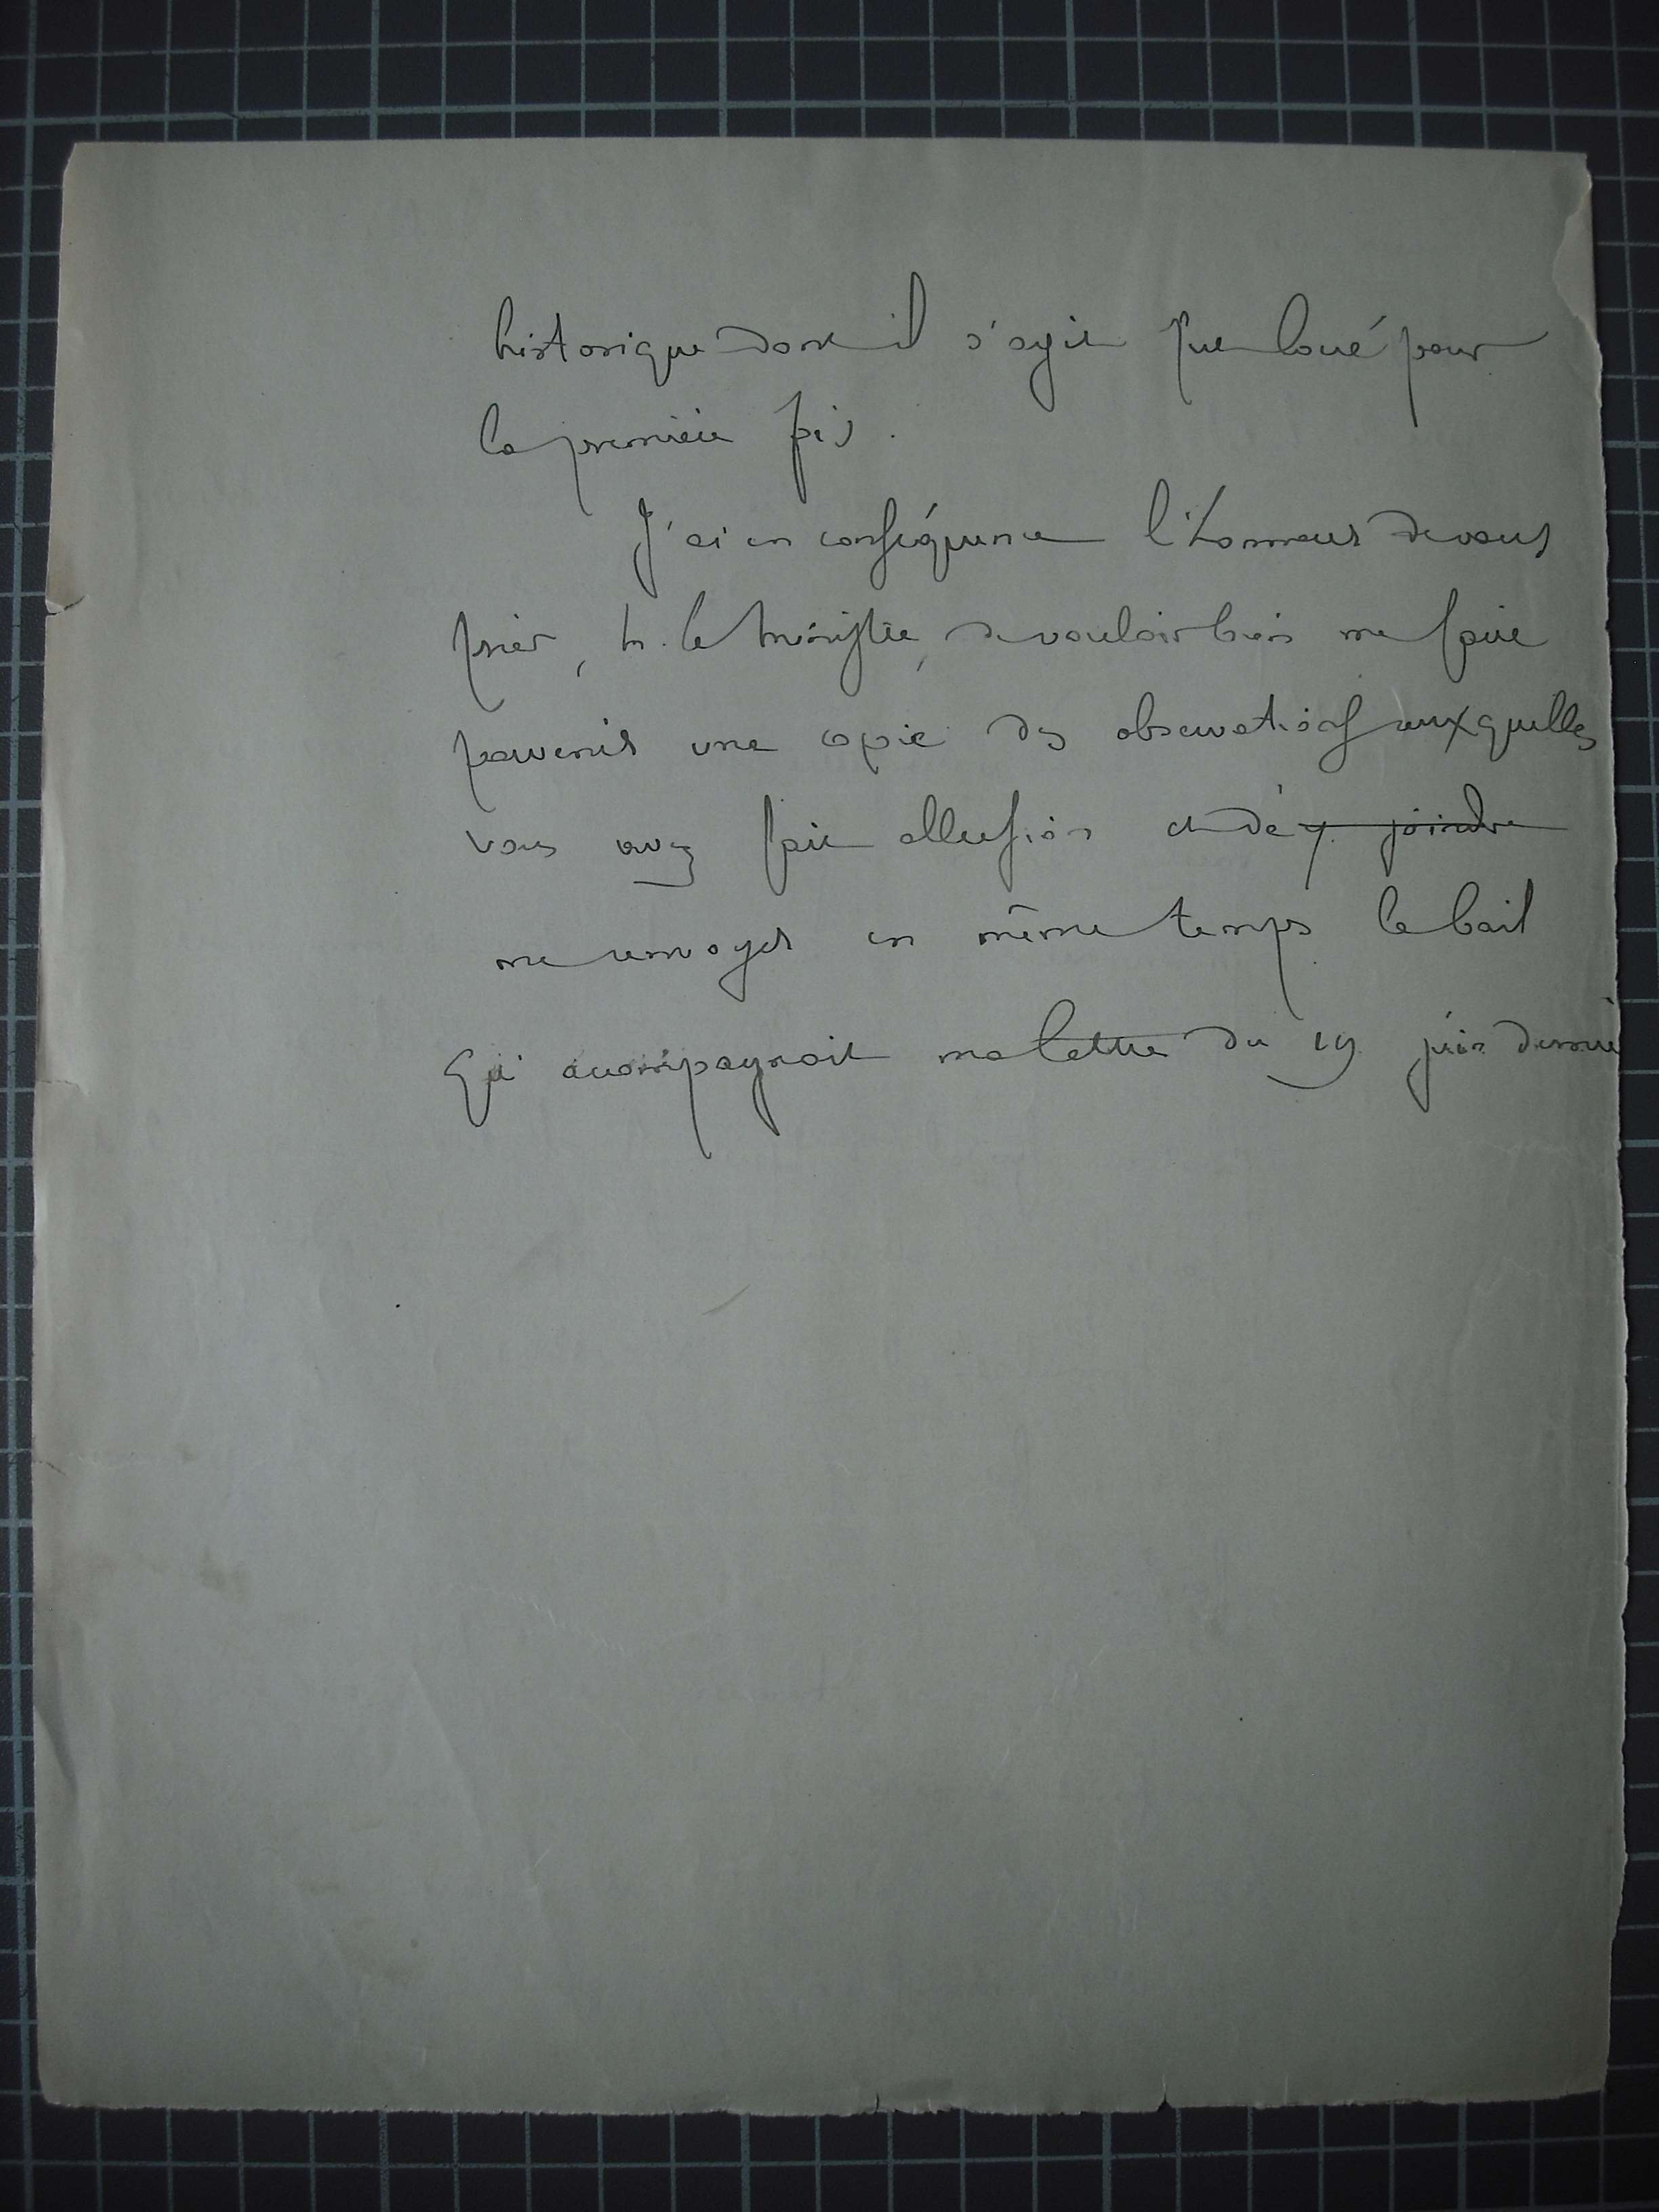 historique dont il s'agit fut loué pour
la première fois.
J'ai en conséquence l'honneur de vous
prier, M. le Ministre, de vouloir bien me faire
parvenir une copie des observations auxquelles
vous avez fait allusion et de y joindre
me renvoyer en même temps le bail
qui accompagnait ma lettre du 19 juin dernier